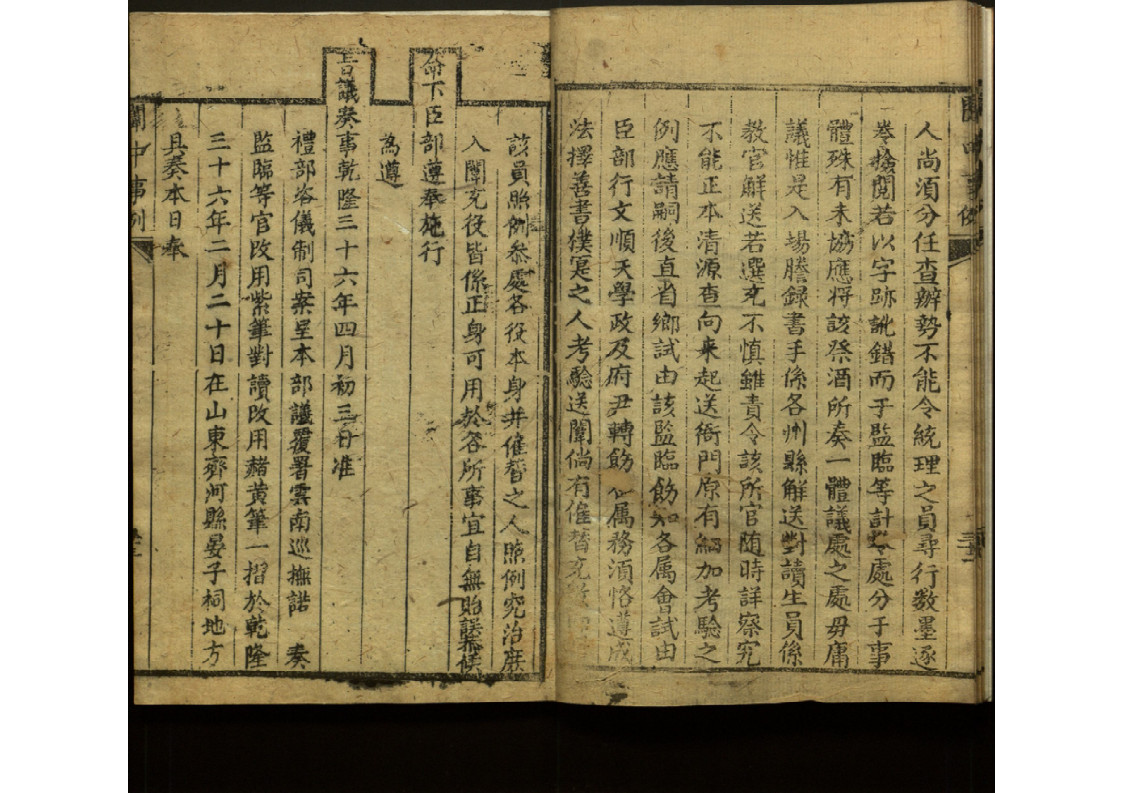 人尚須分任查辦勢不能令統理之員尋行數墨逐
卷撿閱若以字跡訛錯而于監臨等計以處分于事
體殊有未協應將該祭酒所奏一體議處之處毋庸
議惟是入場謄録書手係各州縣解送對讀生員係
教官解送若選充不慎雖責令該所官随時詳察究
不能正本清源查向来起送衙門原有細加考驗之
例應請嗣後直省鄉試由該監臨飭知各属會試由
臣部行文順天學政及府尹轉飭 属務須恪遵成
法擇善書樸寔之人考驗送闈倘有僱替充
該員照例叅處各役本身并僱替之人照例究治庶
入闈充役皆係正身可用於各所事宜自無貽誤恭候
命下臣部遵奉施行
為遵
旨議奏事乾隆三十六年四月初三日准
禮部咨儀制司案呈本部議覆署雲南巡撫諾 奏
監臨等官改用紫筆對讀改用赭黄筆一摺於乾隆
三十六年二月二十日在山東齊河縣晏子祠地方
具奏本日奉
闈中事例